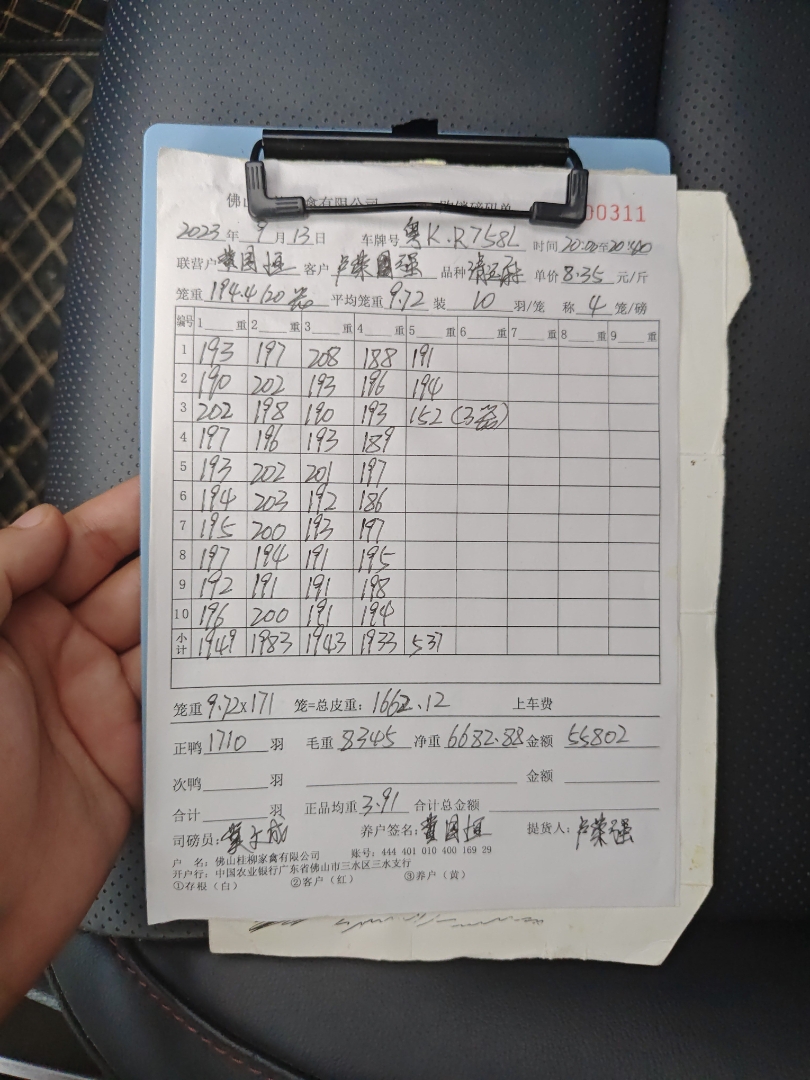 佛山 禽有限公司 购销磅码单 00311
2023年 9月 13日 车牌号 粤K·R758L 时间 20:00至20:40
联营户 黄国恒 客户 卢荣国强 品种 单价 8.35 元/斤
笼重 194.4(20笼) 平均笼重 9.72 装 10 羽/笼 称 4 笼/磅
编号 1 重 2 重 3 重 4 重 5 重 6 重 7 重 8 重 9 重
1 193 197 208 188 191
2 190 202 193 196 194
3 202 198 190 193 152 (3笼)
4 197 196 193 189
5 193 202 201 197
6 194 203 192 186
7 195 200 193 197
8 197 194 191 195
9 192 191 191 198
10 196 200 191 194
小计 1949 1983 1943 1933 537
笼重 9.72×171 笼=总皮重: 1662.12 上车费
正鸭 1710 羽 毛重 8345 净重 6682.88 金额 55802
次鸭 羽 金额
合计 羽 正品均重 3.91 合计总金额
司磅员: 养户签名: 黄国恒 提货人: 卢荣强
户 名: 佛山桂柳家禽有限公司 账号: 444 401 010 400 169 29
开户行: 中国农业银行广东省佛山市三水区三水支行
①存根(白) ②客户(红) ③养户(黄)